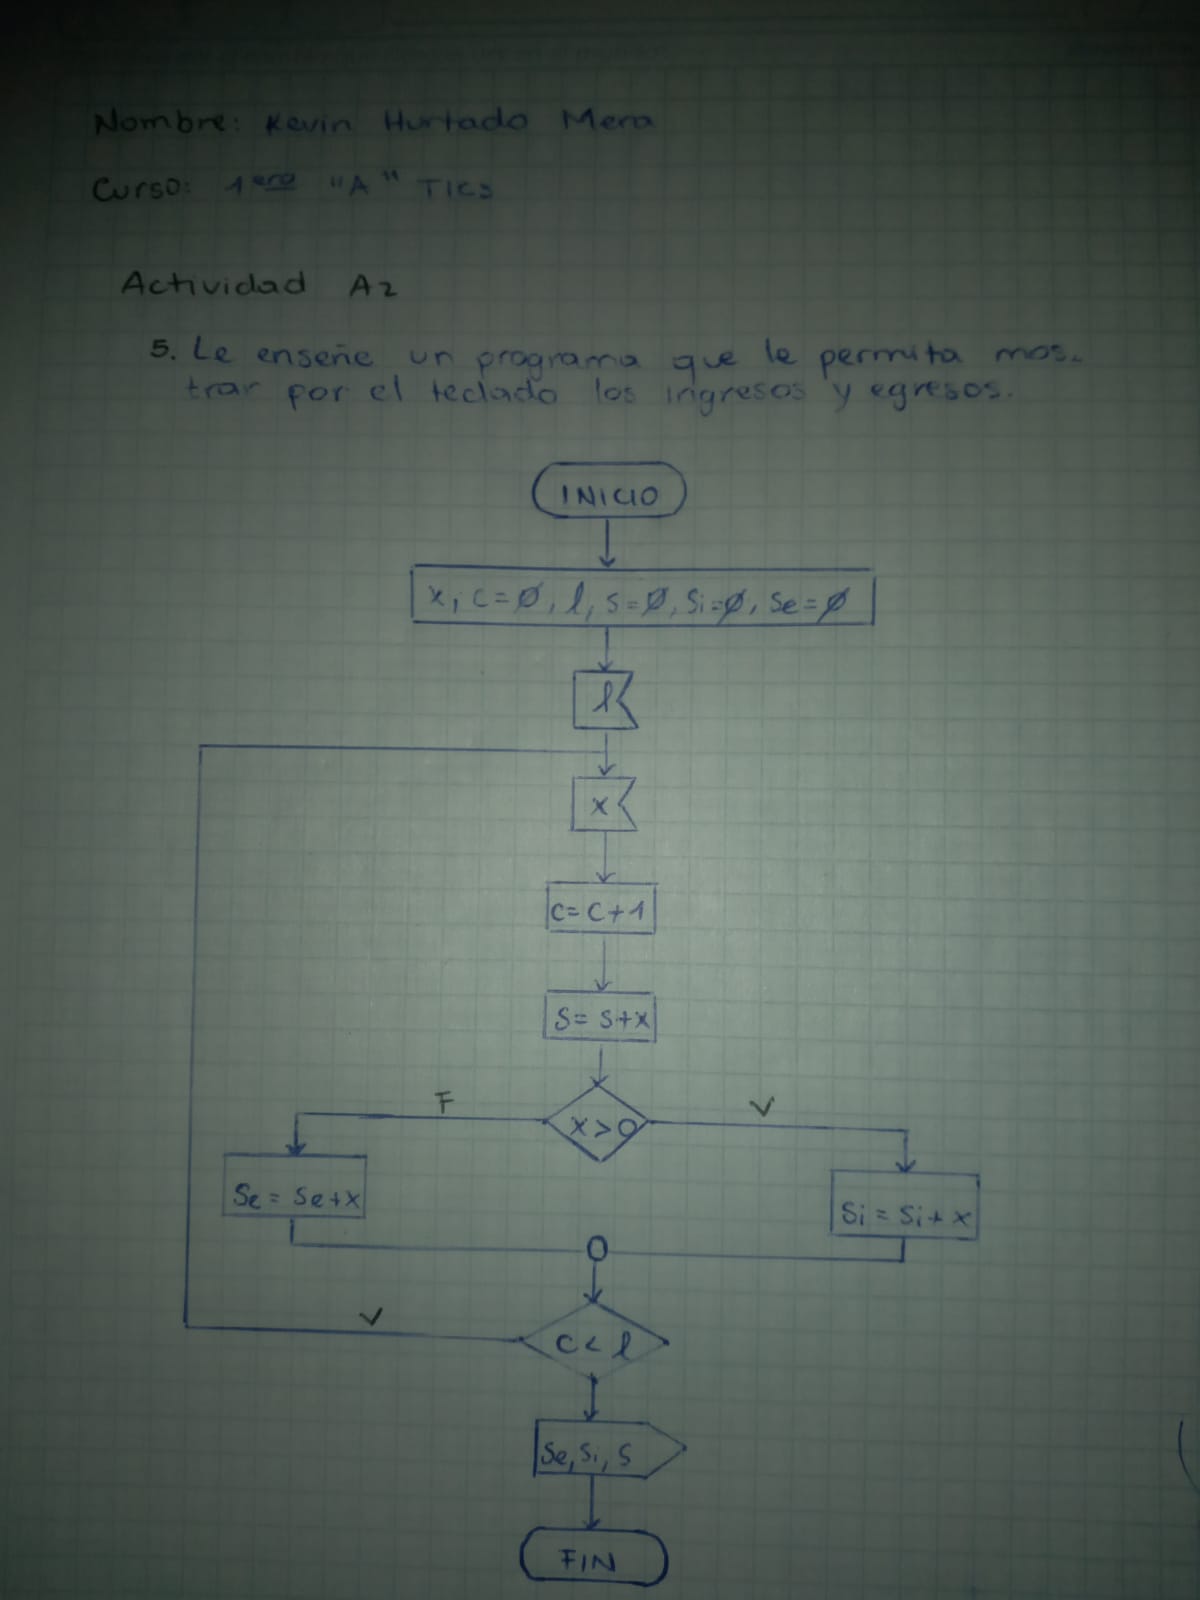 Nombre: Kevin Hurtado Mera
Curso: 1ero "A" TICS
Actividad A2
5. Le enseñe un programa que le permita mos-
trar por el teclado los ingresos y egresos.
INICIO
x, c=Ø, l, s=Ø, Si=Ø, Se=Ø
l
x
c= c+1
S= s+x
F
x>0
V
Se= Se+x
Si= Si+x
V
c< l
Se, Si, S
FIN